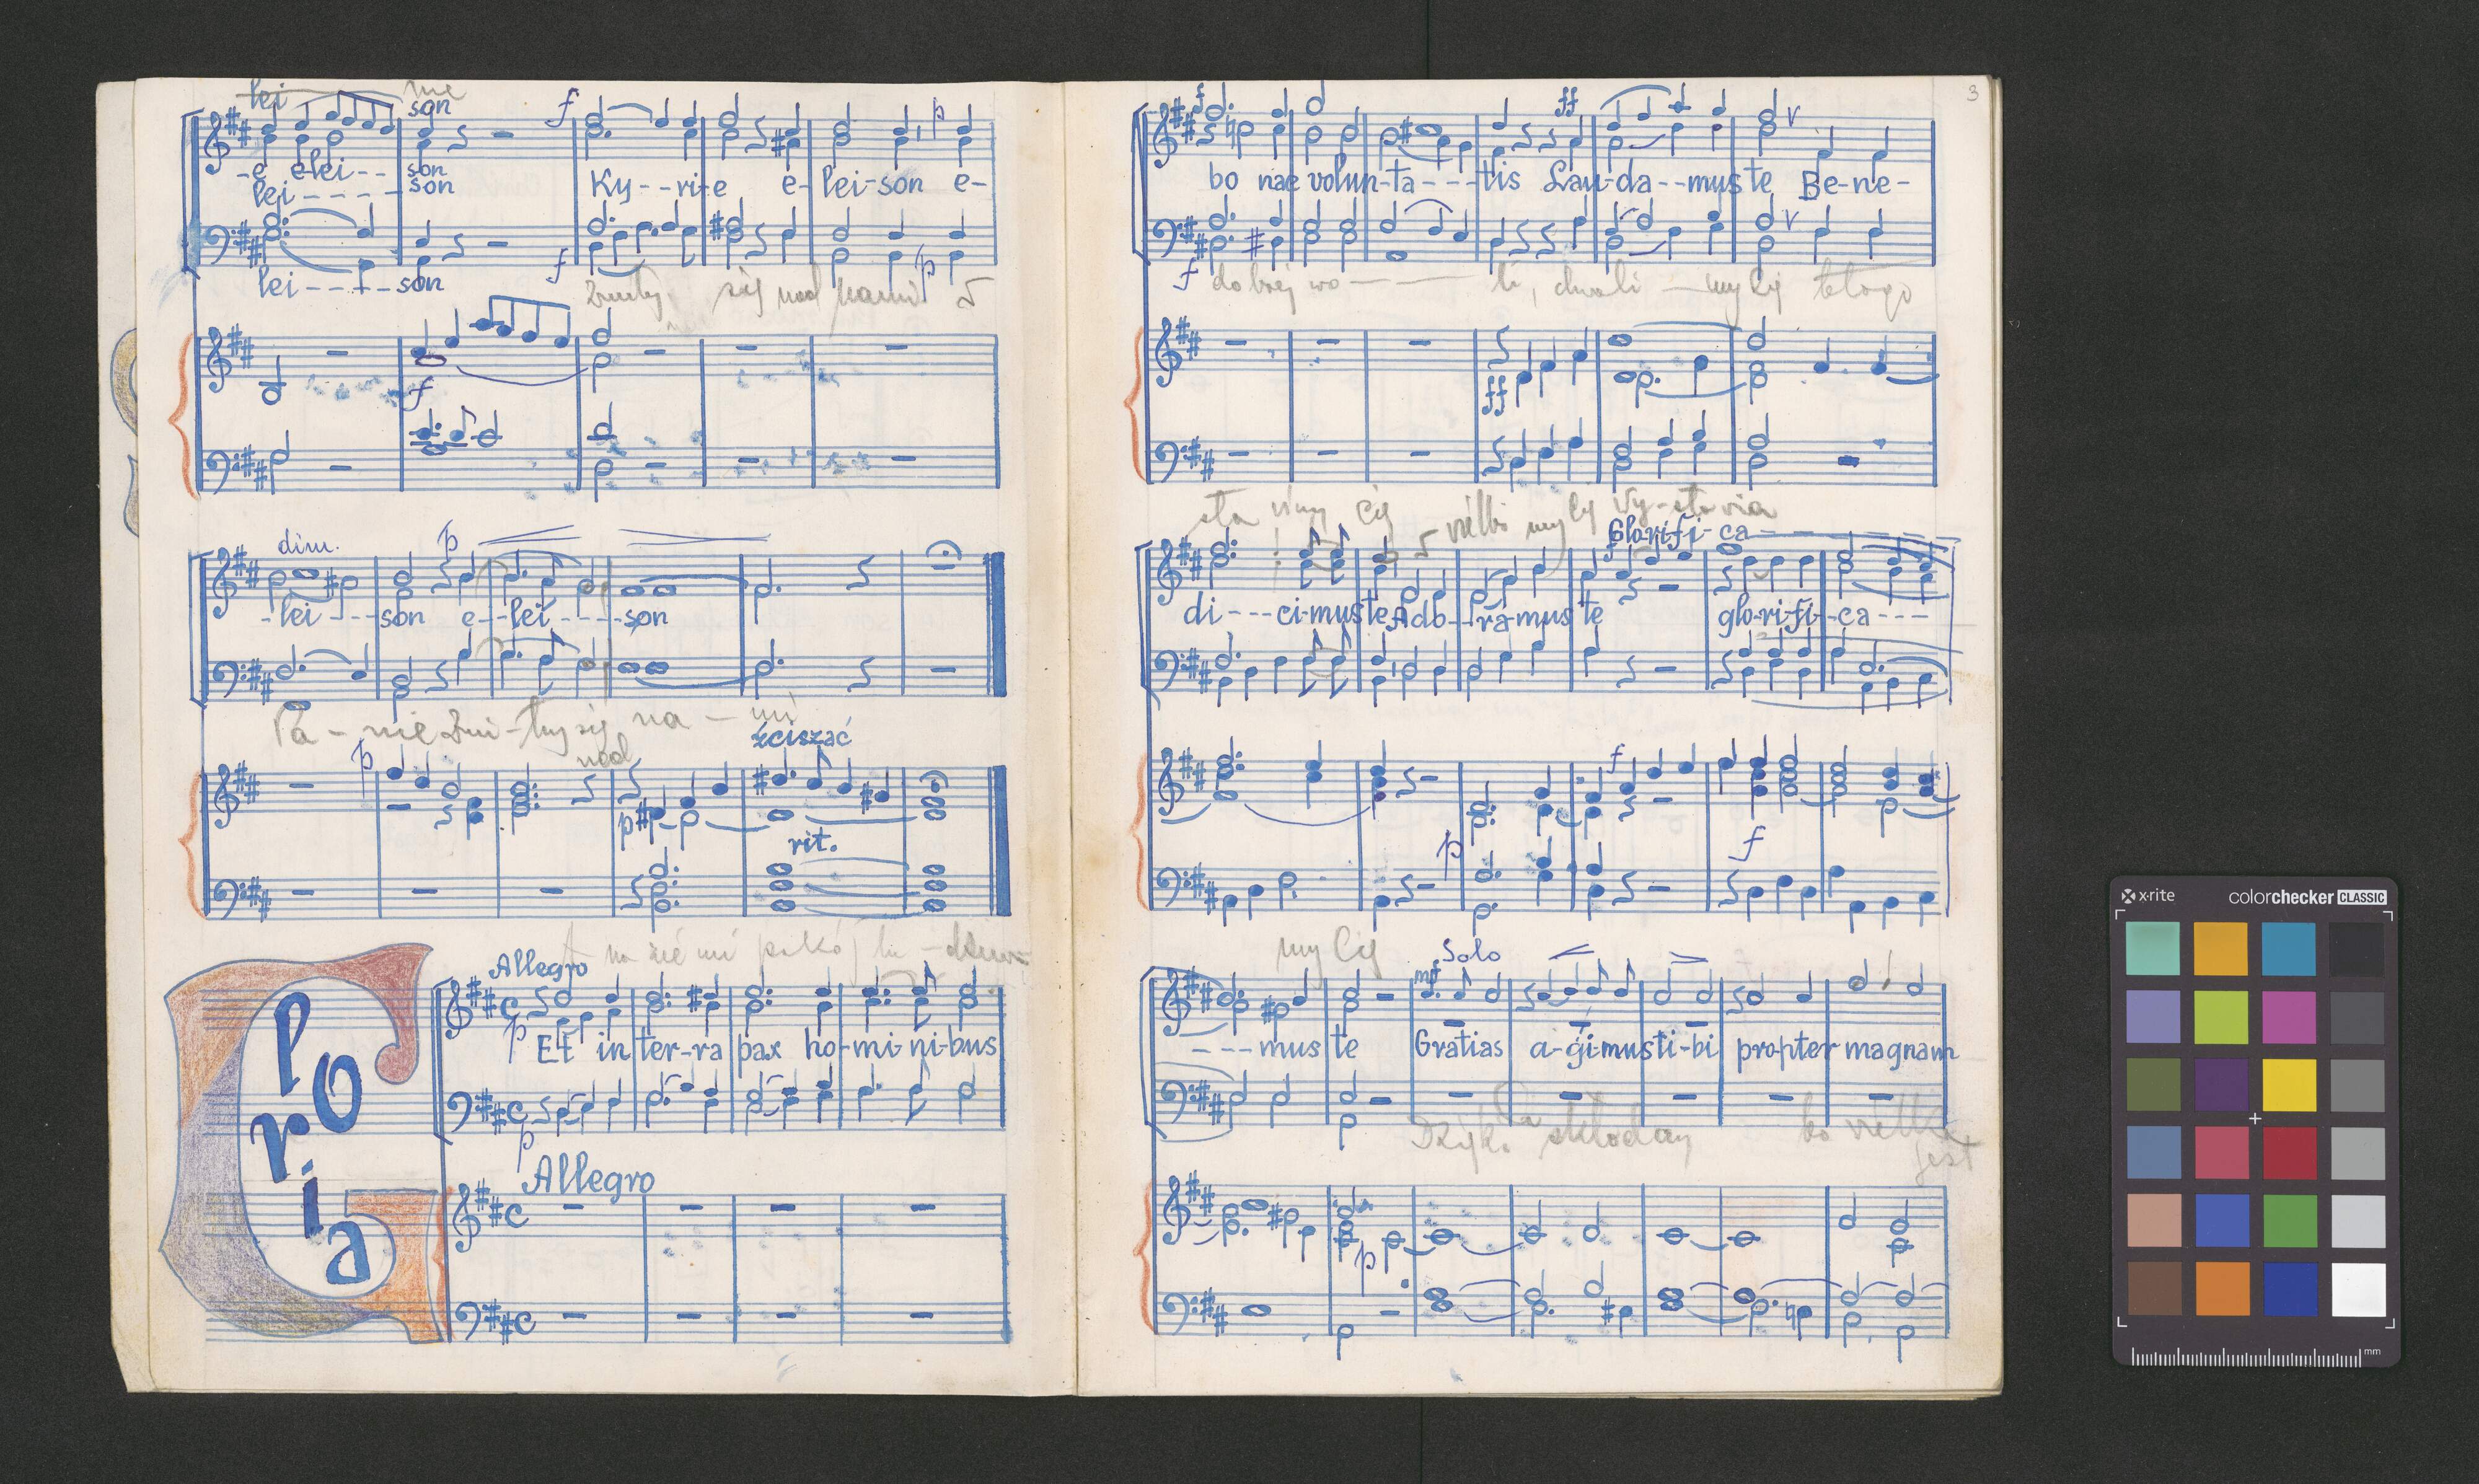 lei nie son
f p
-e e-lei-- son
lei----- son
Ky--ri-e e-lei-son e-
lei---- son
f p
się nad nami
f
dim. p
-lei---son e--lei----son
Pa-nie zmi-łuj się na-mi
nad
ściszać
p
p
rit.
Gloria
A na zie mi pokój lu-dziom
Allegro
p Et in ter-ra pax ho-mi-ni-bus
p
Allegro
3
f ff
bo nae volun-ta---tis Lau-da--muste Be-ne-
f dobrej wo--- li, chwali-my Cię
ff
my Cię wielbi my Cię Wy-sławia
Glo-ri-fi-ca
di---ci-muste Ado--ra-mus te glo-ri-fi-ca---
f
p f
my Cię
mf Solo
---mus te Gratias a-gi-mus ti-bi propter magnam
Dzięki składamy bo wielka
jest
p
x-rite colorchecker CLASSIC
mm